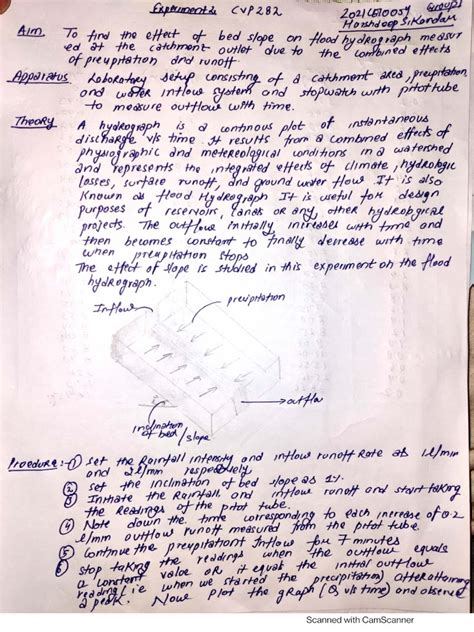 Experiment 2 CVP282
Group 1
Harshdeep Sikandar
Aim To find the effect of bed slope on flood hydrograph measur
ed at the catchment outlet due to the combined effects
of precipitation and runoff.
Apparatus Laboratory setup consisting of a catchment area, precipitation
and water inflow system and stopwatch with pitot tube
to measure outflow with time.
Theory A hydrograph is a continous plot of instantaneous
discharge v/s time. It results from a combined effects of
physiographic and metereological conditions in a watershed
and represents the integrated effects of climate, hydrologic
losses, surface runoff, and ground water flow. It is also
known as flood Hydrograph It is useful for design
purposes of reservoirs, canals or any other hydrological
projects. The outflow initially increases with time and
then becomes constant to finally decrease with time
when precipitation stops
The effect of slope is studied in this experiment on the flood
hydrograph.
Inflow
precipitation
outflow
inclination
of bed / slope
Procedure:- ① Set the Rainfall intensity and inflow runoff Rate as 1l/min
and 2l/min respectively
② Set the inclination of bed slope as 1%
③ Initiate the Rainfall, and inflow runoff and start taking
the readings of the pitot tube.
④ Note down the time corresponding to each increase of 0.2
l/min outflow runoff measured from the pitot tube.
⑤ Continue the precipitation Inflow for 7 minutes
⑥ stop taking the readings when the outflow equals
a constant value OR it equal the initial outflow
reading (ie when we started the precipitation) after attaining
a peak. Now plot the graph (Q v/s time) and observe
Scanned with CamScanner